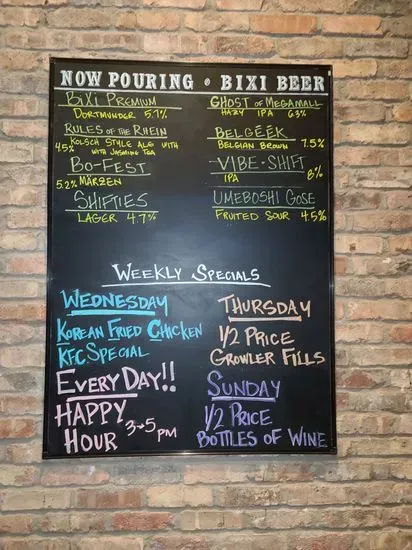 NOW POURING • BIXI BEER
BIXI PREMIUM
DORTMUNDER 5.7%
RULES OF THE RHEIN
4.5% KOLSCH STYLE ALE WITH
WITH JASMINE TEA
BO-FEST
5.2% MÄRZEN
SHIFTIES
LAGER 4.7%
GHOST OF MEGAMALL
HAZY IPA 6.3%
BELGĒĒK
BELGIAN BROWN 7.5%
VIBE-SHIFT
IPA 6%
UMEBOSHI GOSE
FRUITED SOUR 4.5%
WEEKLY SPECIALS
WEDNESDAY
KOREAN FRIED CHICKEN
KFC SPECIAL
THURSDAY
1/2 PRICE
GROWLER FILLS
EVERY DAY!!
HAPPY
HOUR 3→5 PM
SUNDAY
1/2 PRICE
BOTTLES OF WINE